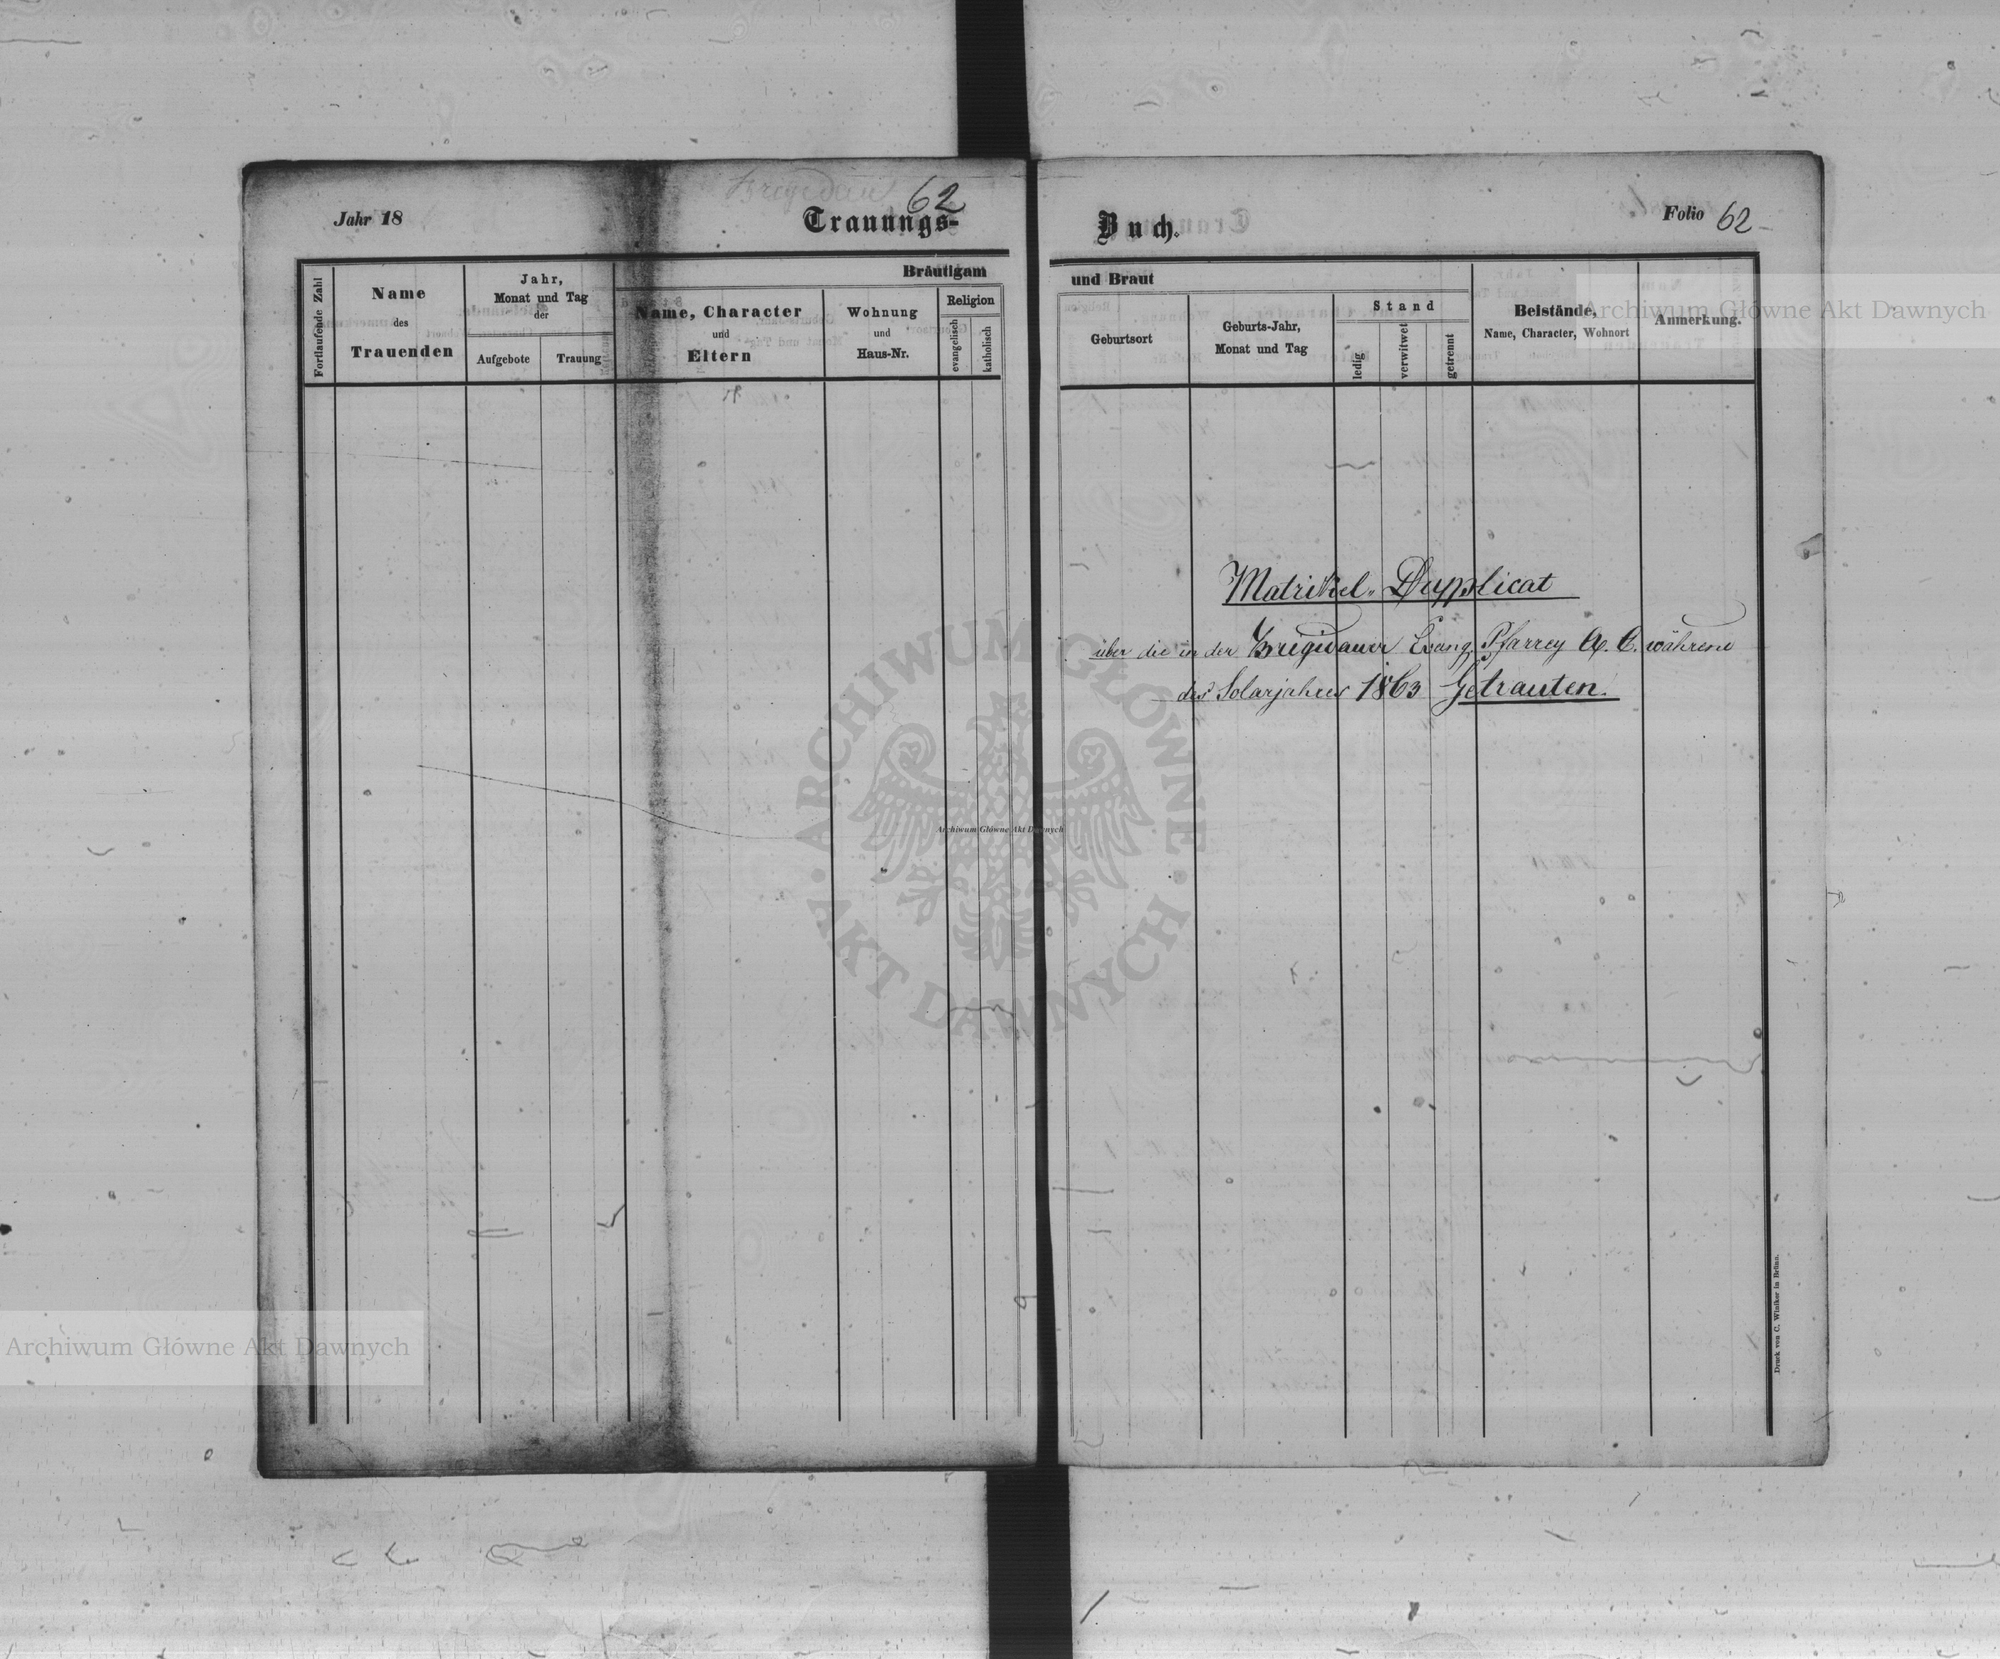 Brigidau
62
Jahr 18
Trauungs-
Buch.
Folio 62
Fortlaufende Zahl
Name
des
Trauenden
Jahr,
Monat und Tag
der
Aufgebote
Trauung
Bräutigam
Name, Character
und
Eltern
Wohnung
und
Haus-Nr.
Religion
evangelisch
katholisch
und Braut
Geburtsort
Geburts-Jahr,
Monat und Tag
Stand
ledig
verwitwet
getrennt
Beistände,
Name, Character, Wohnort
Anmerkung.
Archiwum Główne Akt Dawnych
Matrikel-Dupplicat
über die in der Brigidauer Evang. Pfarrey A. C. während
des Solarjahres 1863 Getrauten.
ARCHIWUM GŁÓWNE
AKT DAWNYCH
Archiwum Główne Akt Dawnych
Archiwum Główne Akt Dawnych
Druck von C. Winiker in Brünn.